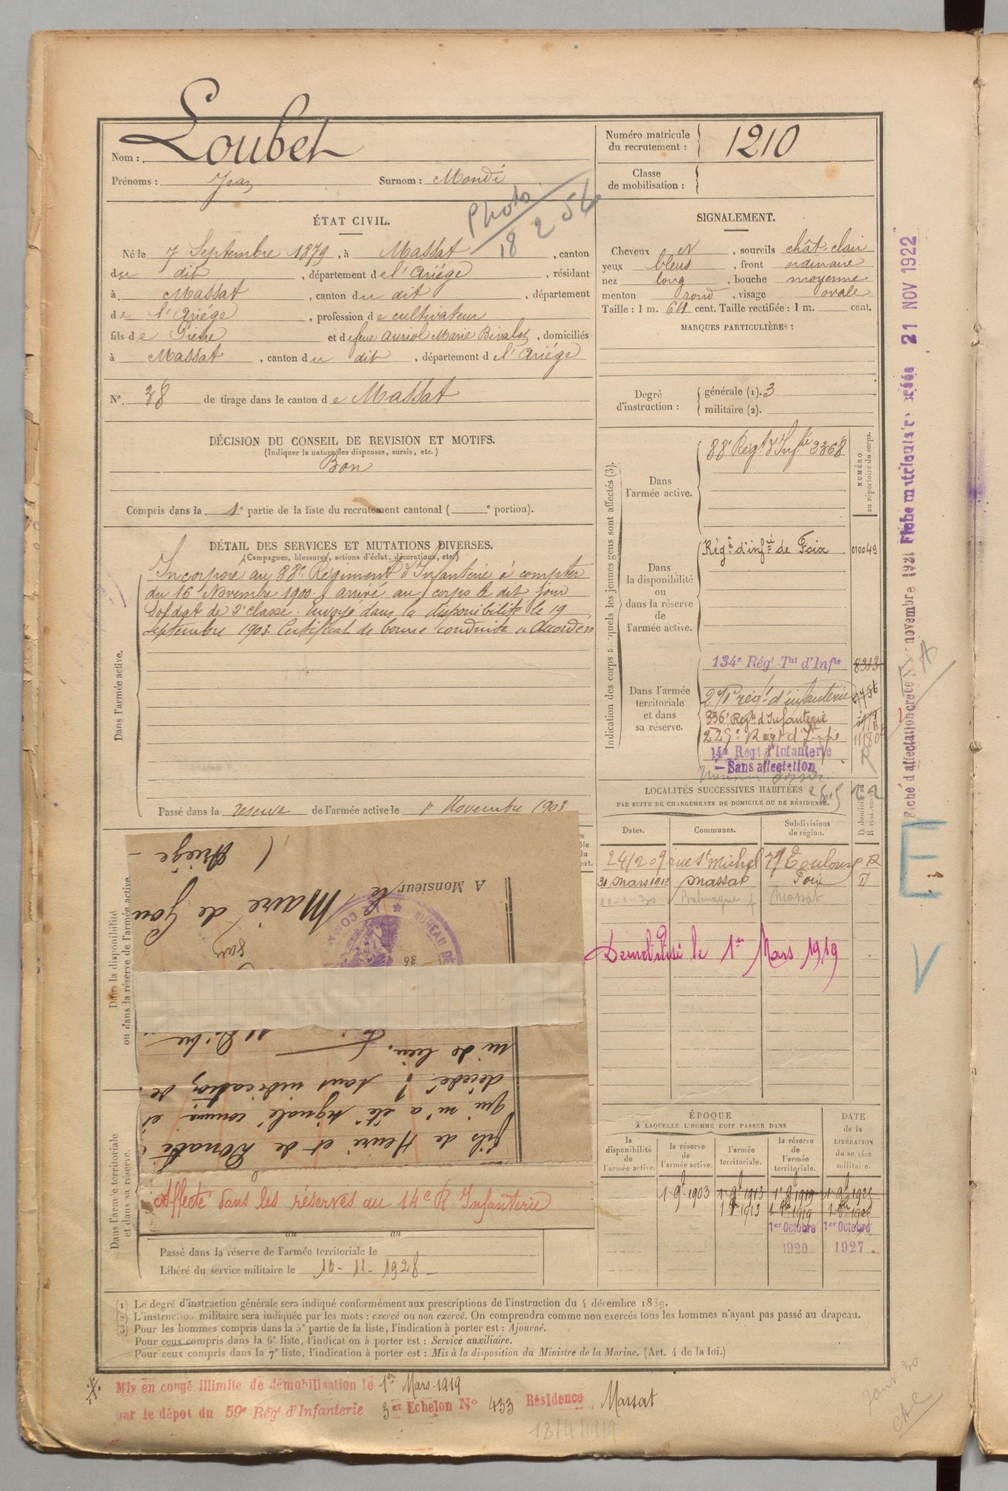 Nom : Loubet
Prénoms : Jean Surnom : Mondi
Numéro matricule du recrutement : 1210
Classe de mobilisation :
Photo
18 2 54
ÉTAT CIVIL.
Né le 7 Septembre 1879, à Massat, canton
du dit, département de l'Ariége, résidant
à Massat, canton du dit, département
de l'Ariège, profession de cultivateur
fils de Pierre et de feue Auriol Marie, domiciliés
à Massat, canton du dit, département de l'Ariége
N° 38 de tirage dans le canton de Massat
SIGNALEMENT.
Cheveux N, sourcils chât. clair
yeux bleus, front ordinaire
nez long, bouche moyenne
menton rond, visage ovale
Taille : 1 m. 64 cent. Taille rectifiée : 1 m. cent.
MARQUES PARTICULIÈRES :
Degré d'instruction : générale (1). 3
militaire (2).
DÉCISION DU CONSEIL DE REVISION ET MOTIFS.
(Indiquer la nature des dispenses, sursis, etc.)
Bon
Compris dans la 1e partie de la liste du recrutement cantonal ( e portion).
DÉTAIL DES SERVICES ET MUTATIONS DIVERSES.
(Campagnes, blessures, actions d'éclat, décorations, etc.)
Dans l'armée active.
Incorporé au 88e Régiment d'Infanterie à compter
du 16 Novembre 1900, arrivé au corps le dit jour
Soldat de 2e classe. Envoyé dans la disponibilité le 19
Septembre 1903. Certificat de bonne conduite Accordé
Passé dans la réserve de l'armée active le 1r Novembre 1903
Dans la disponibilité ou dans la réserve de l'armée active.
A Monsieur
le Maire de
(Ariége
fils de Henri et de
qui m'a été signalé comme
décédé sans indication de
ni de lieu.
Dans l'armée territoriale et dans sa réserve.
Affecté dans les réserves au 14e R d'Infanterie
Passé dans la réserve de l'armée territoriale le
Libéré du service militaire le 10-11-1928
Indication des corps auxquels les jeunes gens sont affectés (3).
NUMÉRO au répertoire du corps.
Dans l'armée active.
88e Régt d'Infie 3368
Dans la disponibilité ou dans la réserve de l'armée active.
Régt d'infie de Foix 010049
Dans l'armée territoriale et dans sa réserve.
134e Régt Tal d'Infie 8313
régt d'infanterie
336e Régt d'Infanterie
225e Régt d'Infie
14e Régt d'Infanterie
— Sans affectation
LOCALITÉS SUCCESSIVES HABITÉES
PAR SUITE DE CHANGEMENTS DE DOMICILE OU DE RÉSIDENCE.
Dates. Communes. Subdivisions de région.
24/2 09 rue St Michel Toulouse R
31 Mars 1912 Massat Foix D
Massat
Démobilisé le 1er Mars 1919
ÉPOQUE
À LAQUELLE L'HOMME DOIT PASSER DANS
DATE de la LIBÉRATION du service militaire.
la disponibilité de l'armée active. la réserve de l'armée active. l'armée territoriale. la réserve de l'armée territoriale.
1 9bre 1903 1 9bre 1913 1 9bre 1919 1 9bre 1925
1er Octobre 1920 1er Octobre 1927
(1) Le degré d'instruction générale sera indiqué conformément aux prescriptions de l'instruction du 4 décembre 1889.
(2) L'instruction militaire sera indiquée par les mots : exercé ou non exercé. On comprendra comme non exercés tous les hommes n'ayant pas passé au drapeau.
(3) Pour les hommes compris dans la 5e partie de la liste, l'indication à porter est : Ajourné.
Pour ceux compris dans la 6e liste, l'indication à porter est : Service auxiliaire.
Pour ceux compris dans la 7e liste, l'indication à porter est : Mis à la disposition du Ministre de la Marine. (Art. 4 de la loi.)
Mis en congé illimité de démobilisation le 1er Mars 1919
par le dépot du 59e Rég d'Infanterie 3er Echelon N° 433 Résidence Massat
12/4/1919
Fiche matriculaire créée 21 NOV 1922
E
V